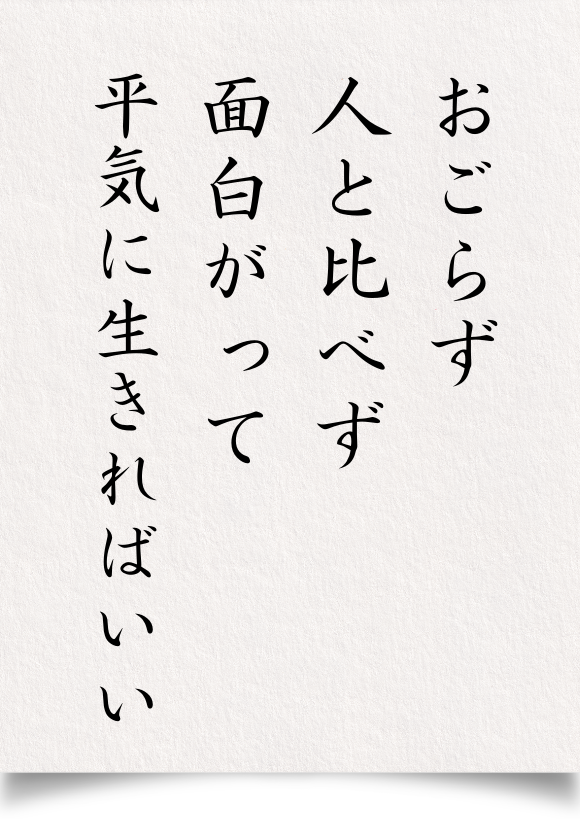 おごらず
人と比べず
面白がって
平気に生きればいい